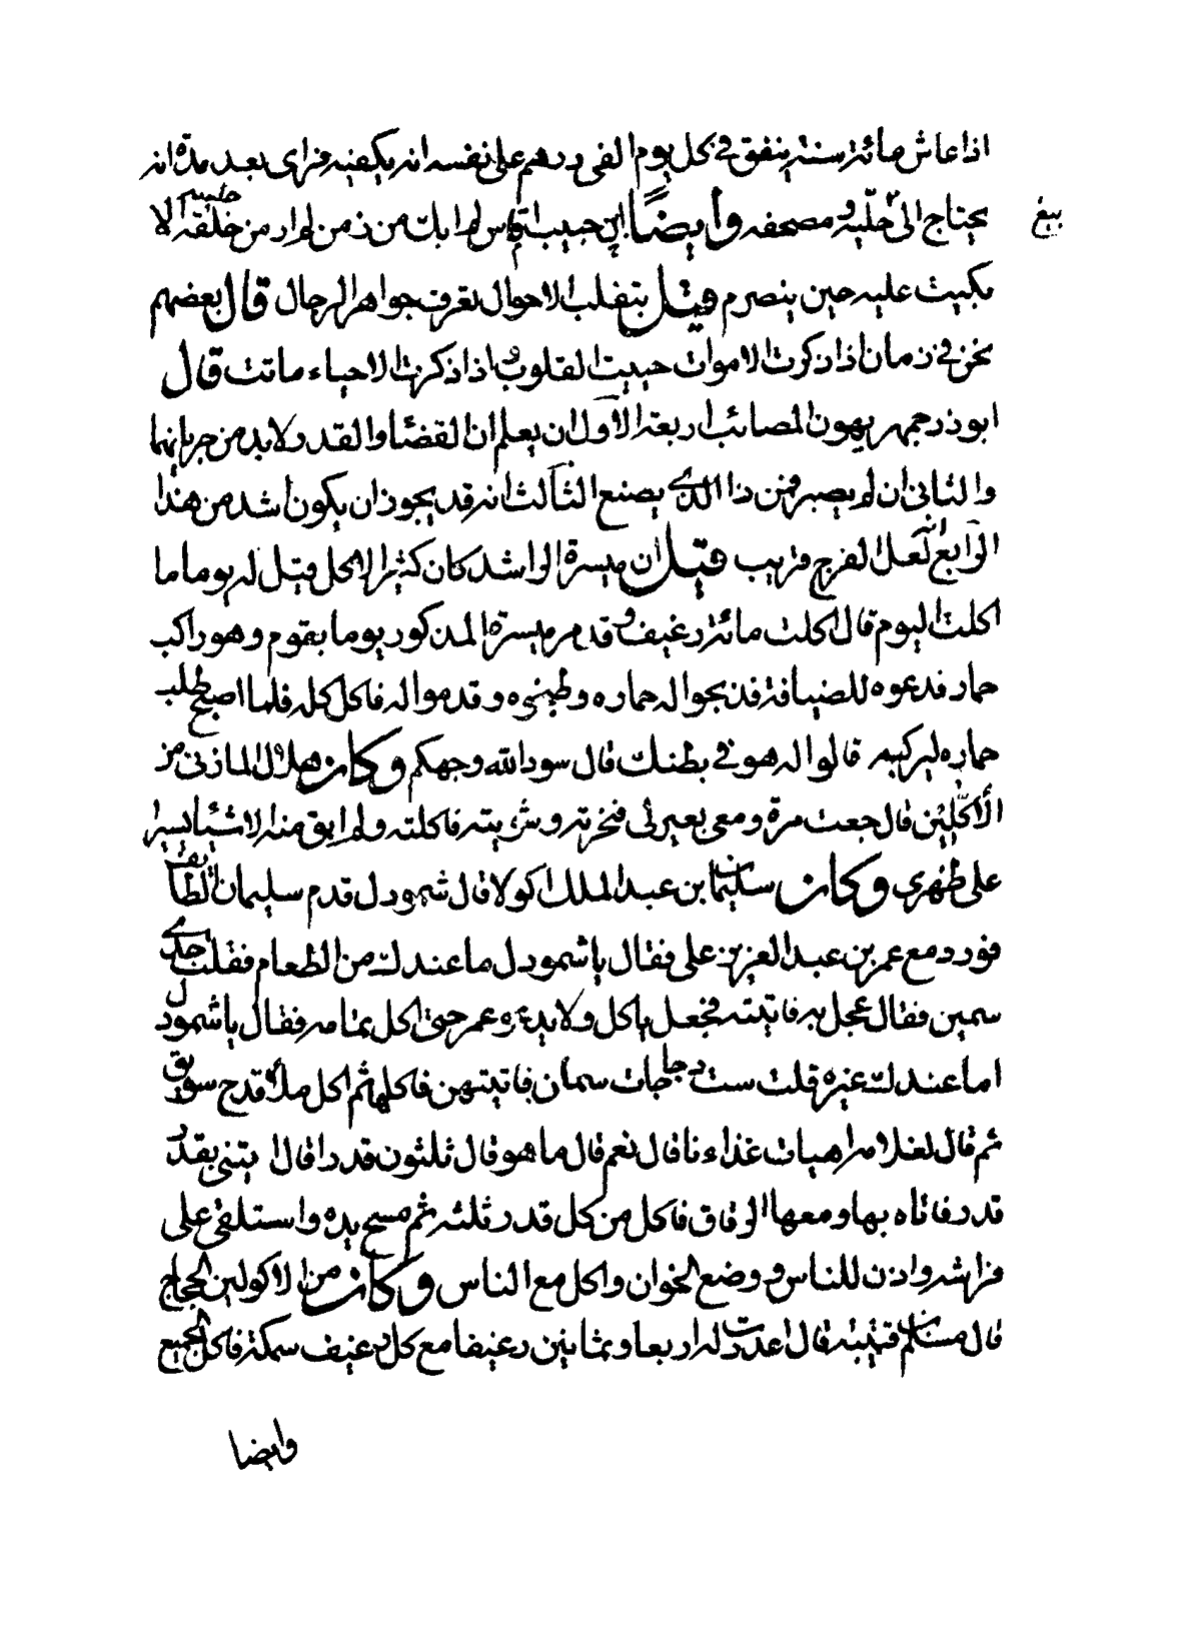 اذا عاش مائة سنة ينفق في كل يوم الفي درهم على نفسه انه يكفيه فراى بعد مدة انه
يحتاج الى حلية مصحفه وايضا ابن حبيب لم ابك من زمن لم ار من خلقه الا
بكيت عليه حين ينصرم وقيل بتقلب الاحوال تعرف جواهر الرجال قال بعضهم
نحن في زمان اذا ذكرت الاموات حييت القلوب واذا ذكرت الاحياء ماتت قال
ابوذرجمهر يهون المصائب اربعة الاول ان يعلم ان القضا والقدر لا بد من جريانهما
والثاني ان لم يصبر فمن ذا الذي يصنع الثالث انه قد يجوز ان يكون اشد من هذا
الرابع لعل الفرج قريب قيل ان ميسرة الراشد كان كثير الاكل قيل له يوما ما
اكلت اليوم قال اكلت مائة رغيف وقد مر ميسرة المذكور يوما بقوم وهو راكب
حمار فدعوه للضيافة فذبحوا له حماره وطبخوه وقدموا له فاكل كله فلما اصبح طلب
حماره ليركبه قالوا له هو في بطنك قال سود الله وجهكم وكان هلال المازني من
الاكالين قال جعت مرة ومعي بعير لي فنحرته وشويته فاكلته ولم ابق منه الا شيئا يسيرا
على ظهري وكان سليمان بن عبد الملك اكولا قال شمودل قدم سليمان الطائف
فورد مع عمر بن عبد العزيز على فقال يا شمودل ما عندك من الطعام فقلت جدي
سمين فقال عجل به فاتيته فجعل ياكل ولا يدعو عمر حتى اكل تمامه فقال يا شمودل
اما عندك غيره قلت ست دجاجات سمان فاتيتهن فاكلها ثم اكل ملأ قدح سويق
ثم قال لغلامه اهيات غذاءنا قال نعم قال ما هو قال ثلثون قدرا قال ايتني بقدر
قدر فاتاه بها ومعها الرقاق فاكل من كل قدر ثلثه ثم مسح يده واستلقى على
فراشه واذن للناس ووضع الخوان واكل مع الناس وكان من الاكولين الحجاج
قال مسلم قتيبة قال اعددت له اربعا وثمانين رغيفا مع كل رغيف سمكة فاكل الجميع
وايضا